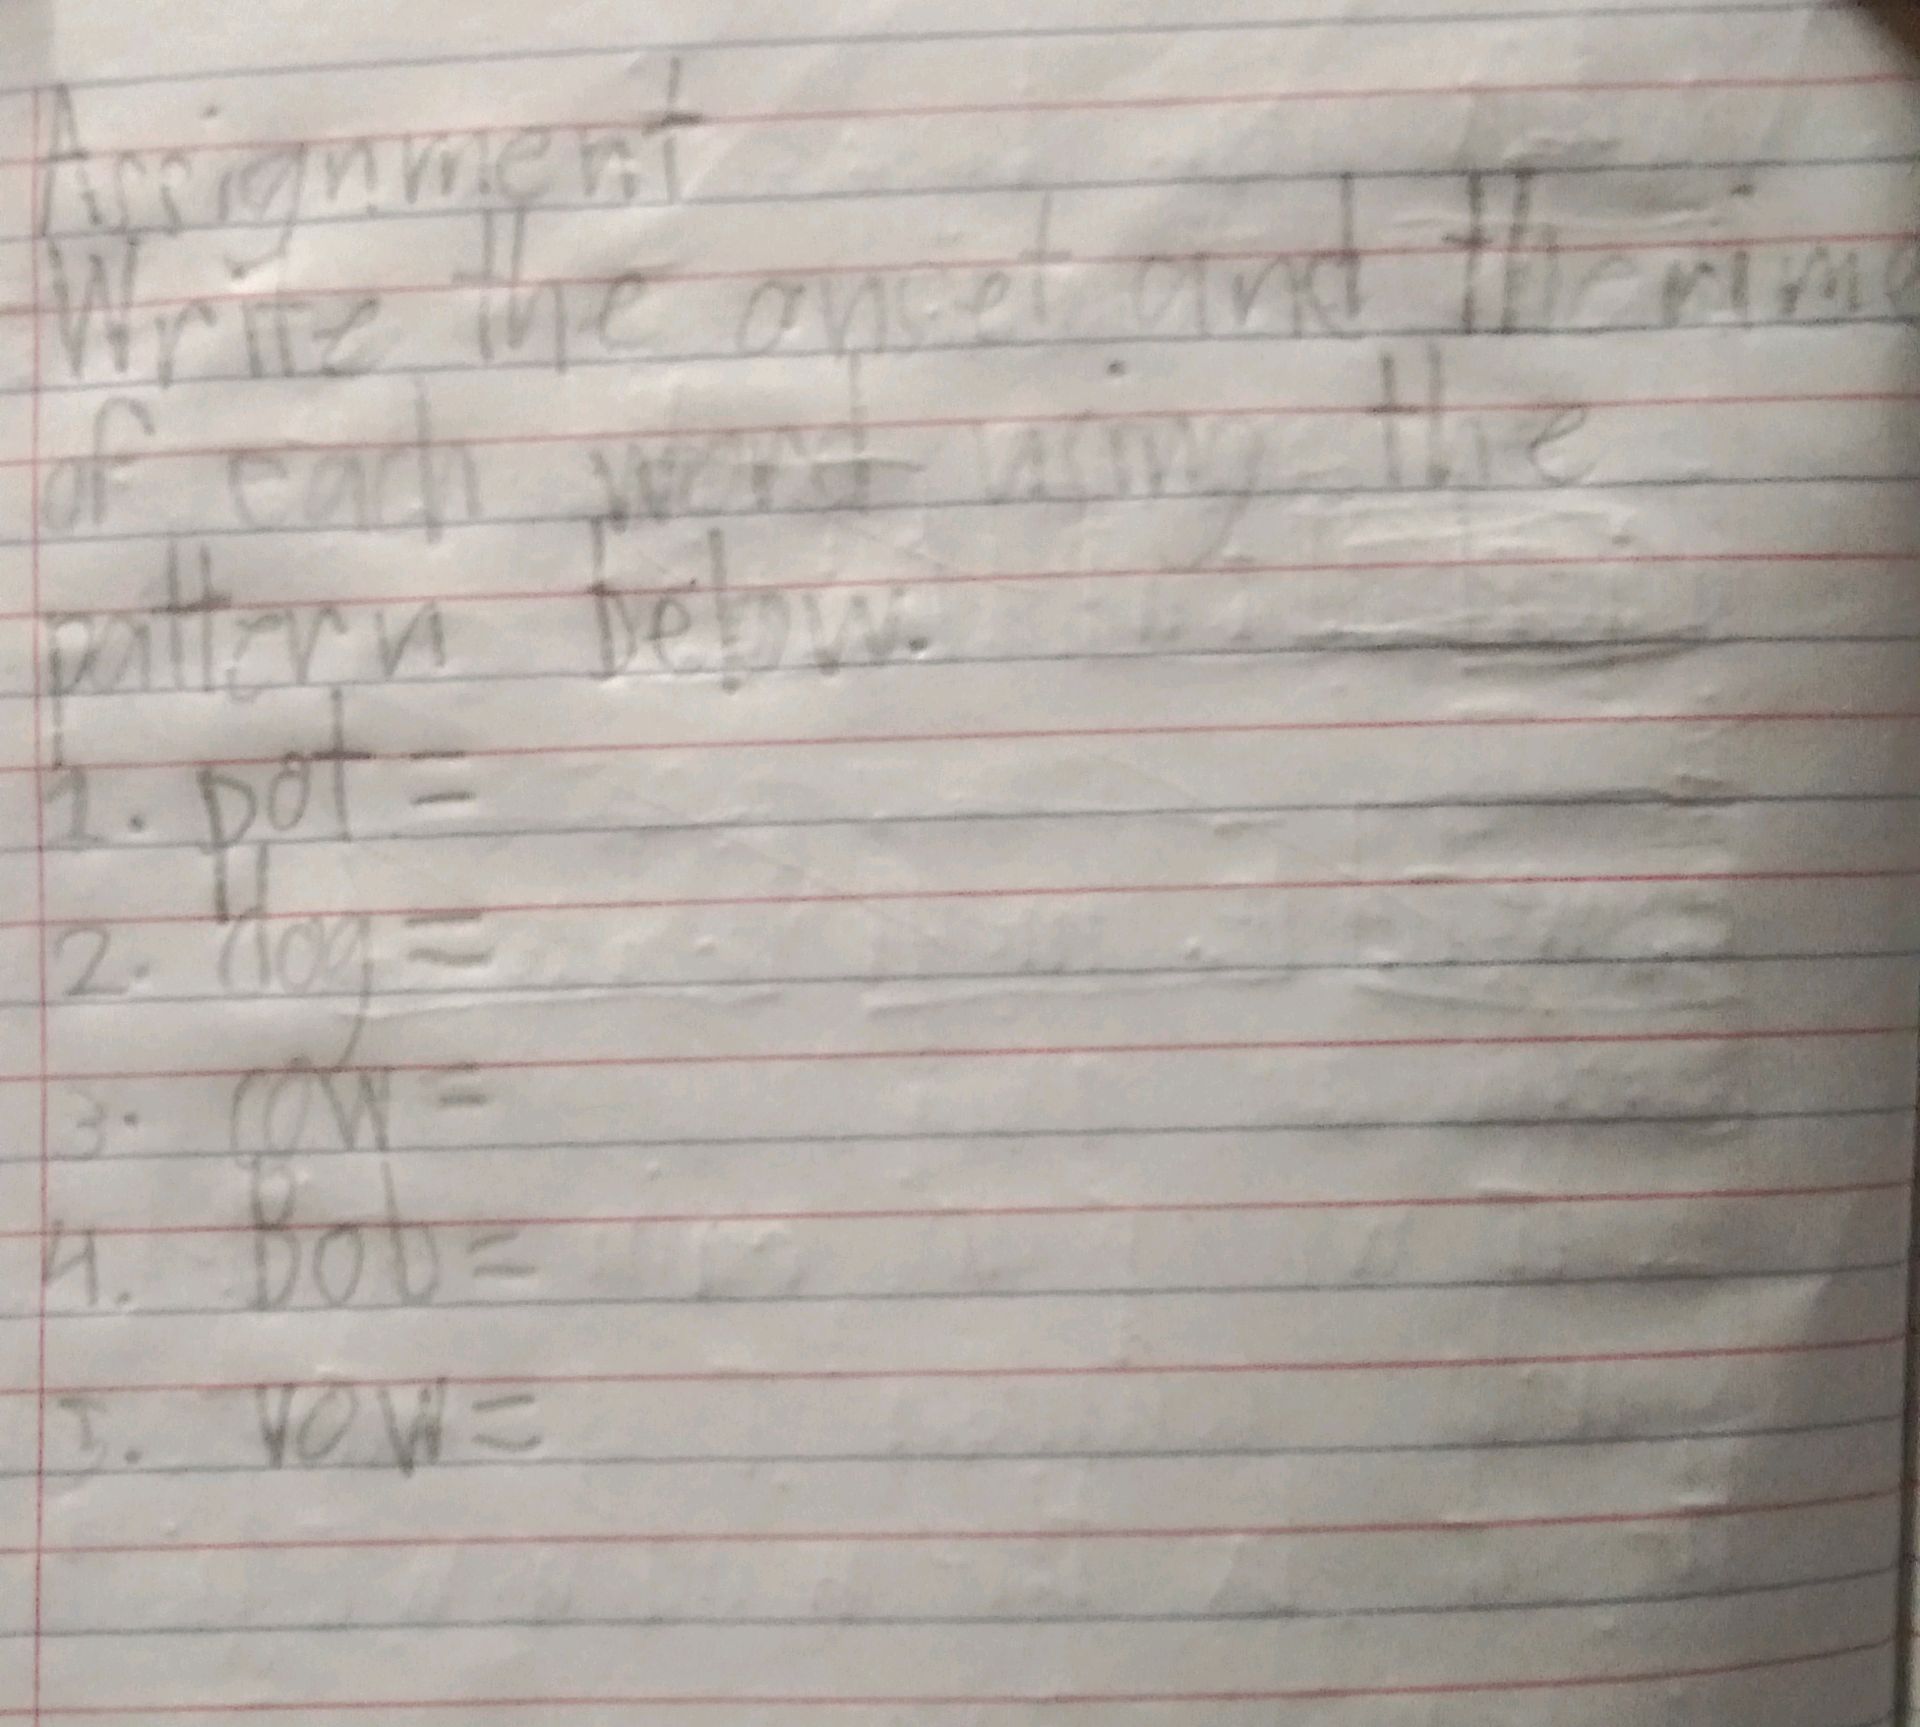 Assignment
Write the onset and the rime
of each word using the
pattern below.
1. pot =
2. dog =
3. row =
4. Bob =
5. vow =